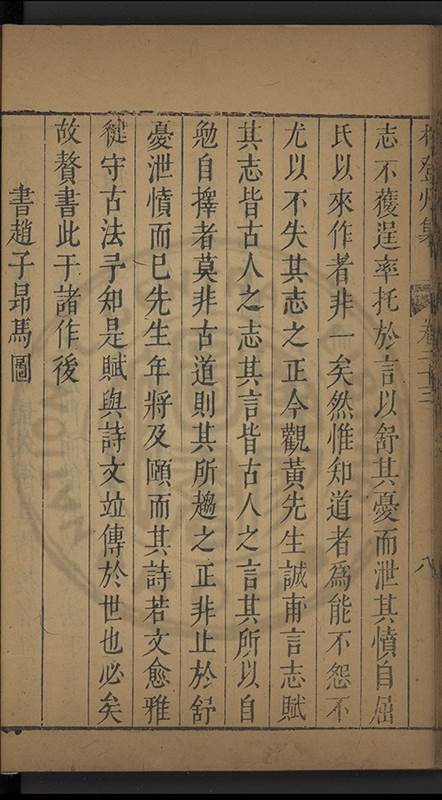 登州集
卷二十三
八
志不獲逞率托於言以舒其憂而泄其憤自屈
氏以來作者非一矣然惟知道者爲能不怨不
尤以不失其志之正今觀黃先生誠甫言志賦
其志皆古人之志其言皆古人之言其所以自
勉自擇者莫非古道則其所趨之正非止於舒
憂泄憤而已先生年將及頤而其詩若文愈雅
健守古法予知是賦與詩文竝傳於世也必矣
故贅書此于諸作後
書趙子昂馬圖